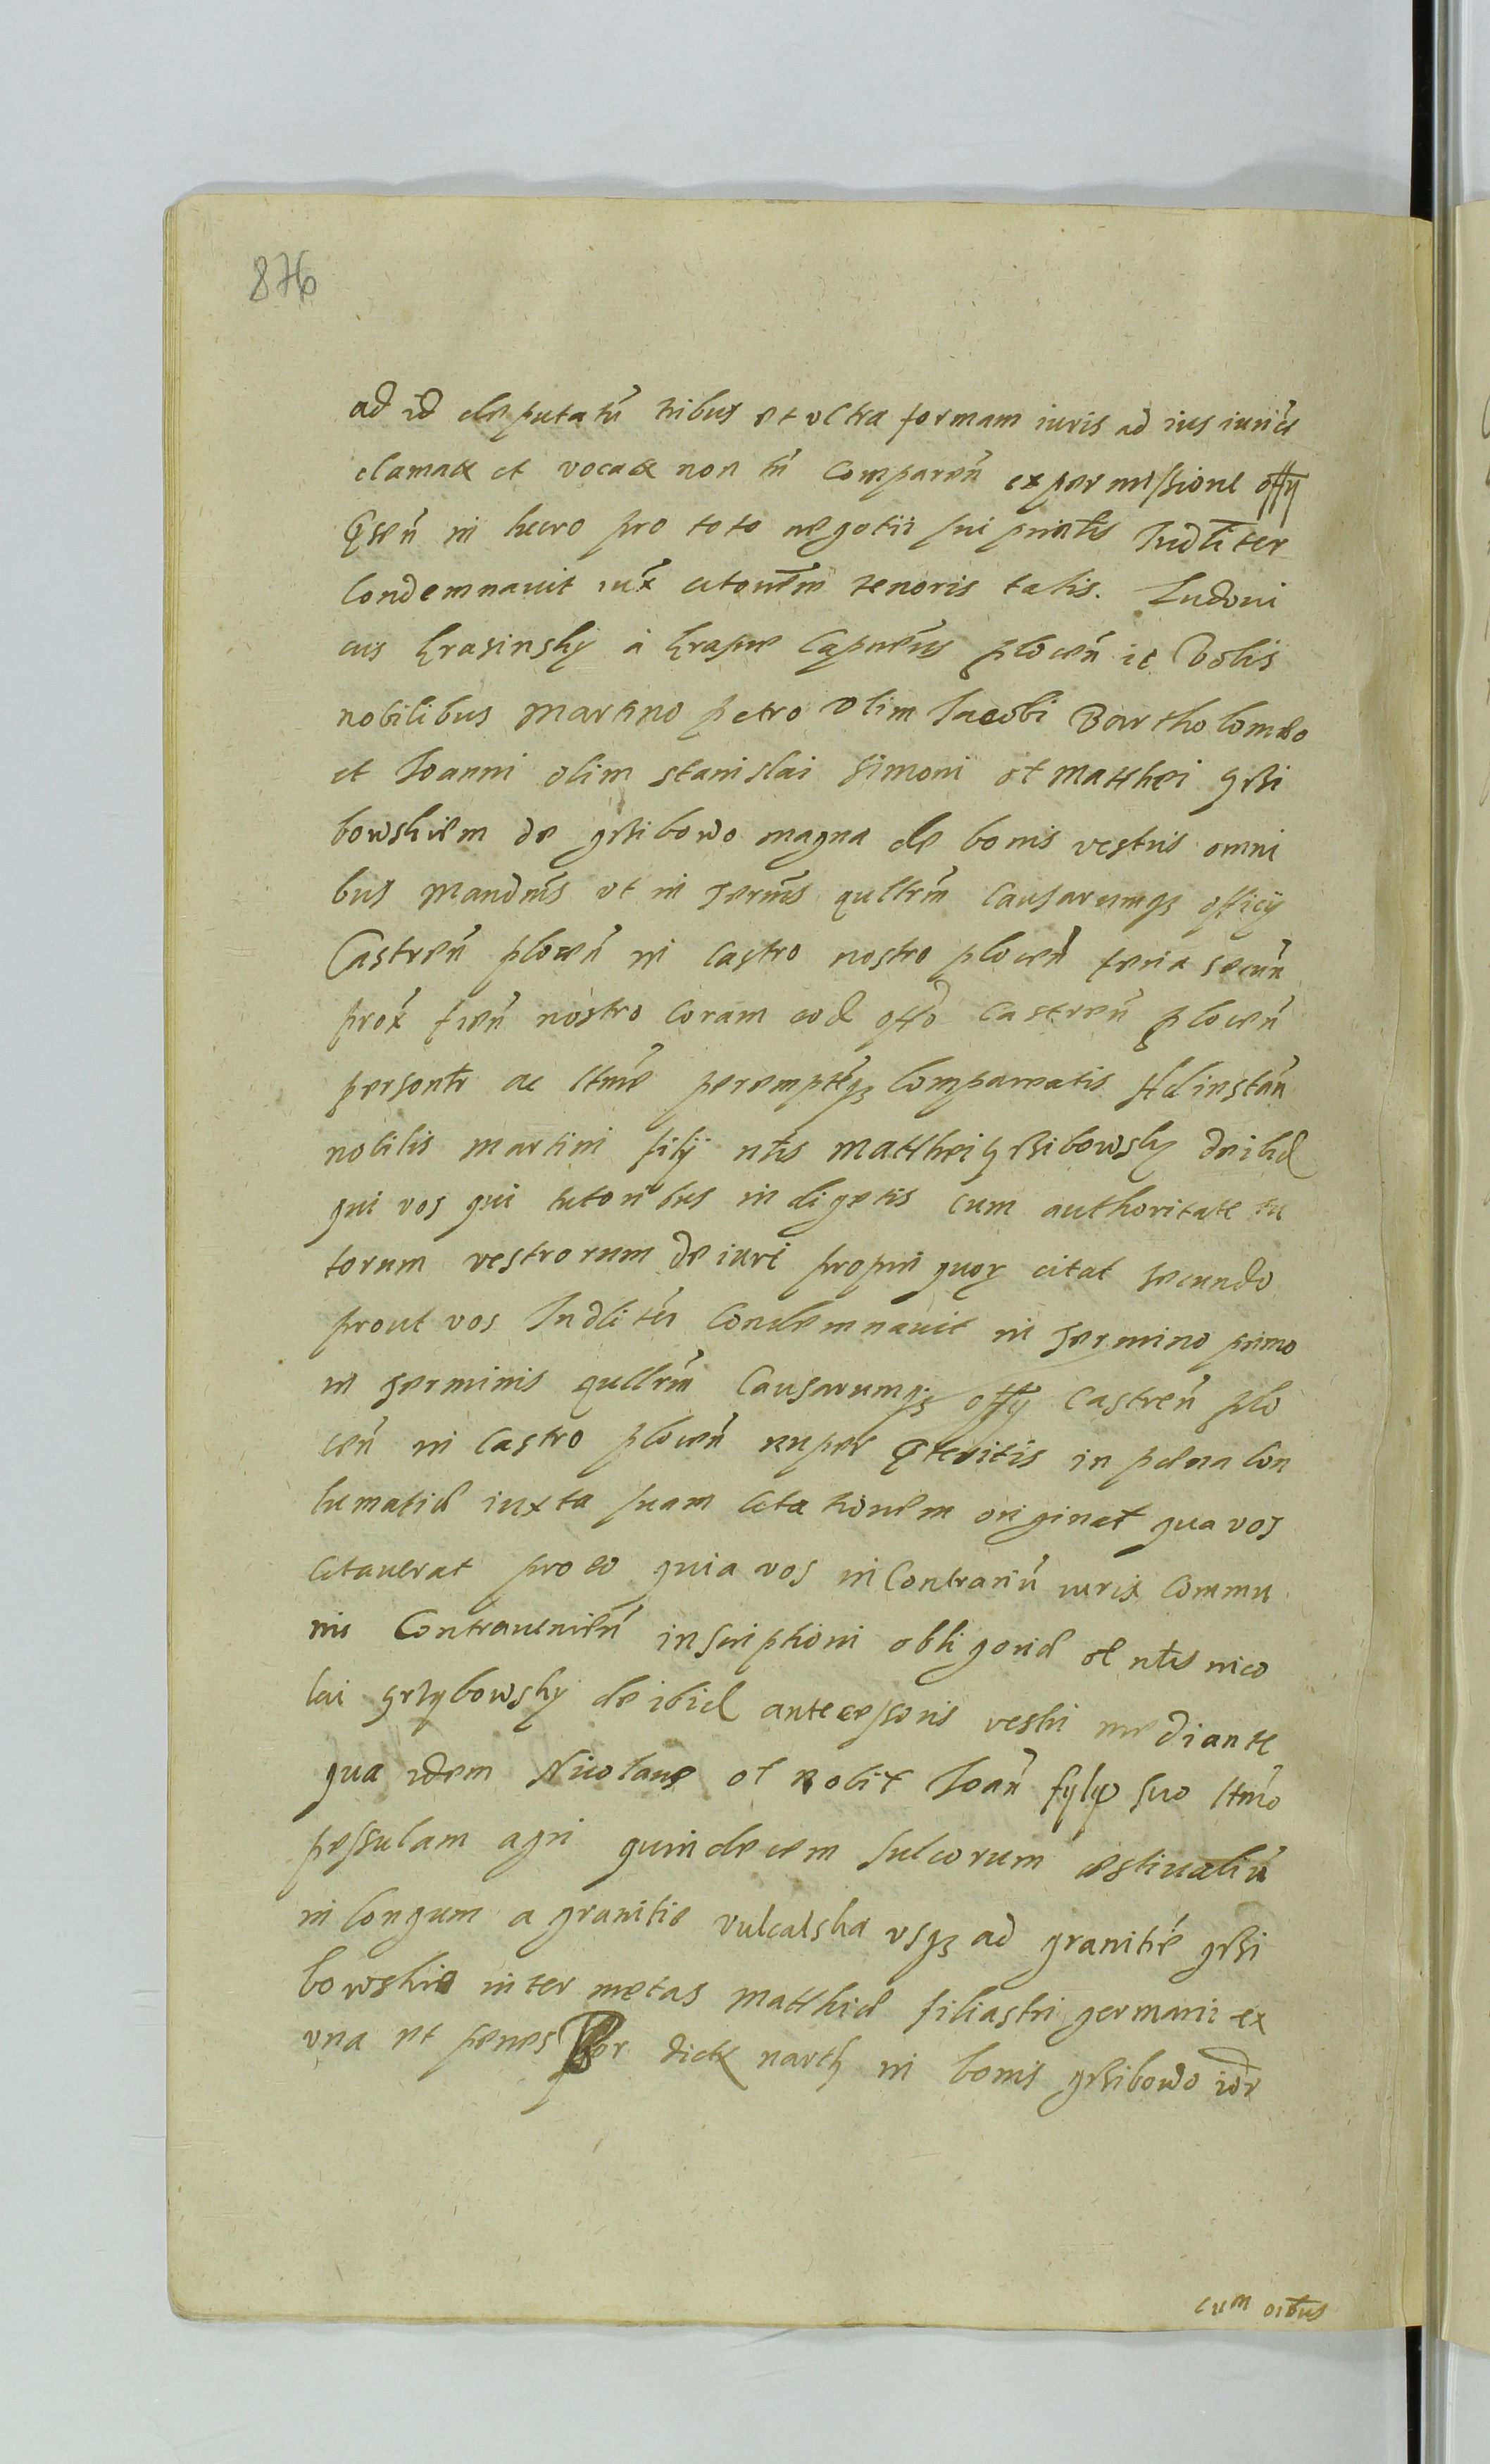 876
ad id deputatũ tribus et ultra formam iuris ad ius iunctis
clamatos et vocatos non tñ comparen̄ ex permissione offij
Pñsen̄ in lucro pro toto negotii sui prin̄tis Iudlīter
Condemnavit iux̃ citonem tenoris talis. Ludovi
cus Krasinsky à Krasne Capneūs plocen̄ ic Vobis
nobilibus Martino Petro olim Iacobi Bartholomeo
et Ioanni olim stanislai Simoni ol Matthei grsi
bowskiem de grsibowo magna de bonis vestris omni
bus Mandm̃s ut in Termīs qullrm̃ Causarumq3 officij
Castren̄ plocen̄ in Castro nostro plocen̄ feria secun̄
prox̃ fien̄ nostro Coram eod offo Castren̄ plocen̄
personlr̃ ac ltīme peremptīeq3 Compareatis Ad instan̄
nobilis martini filij nl̃is Matthei grsibowsky de ibid
qui vos qui tutoribus indigetis cum authoritate tu
torum vestrorum de iuri propinquorz citat secundo
prout vos Iudlitēr Condemnavit in Termino primo
in Terminis qullrm̃ Causarumq3 offij Castren̄ plo
cen̄ in Castro plocen̄ nuper Pteritis in pæna Con
tumatiæ iuxta suam Citationem originał qua vos
Citaverat pro eo quia vos in Contrariũ iuris Commu
nis Contravenien̄ inscriptioni obligoriæ ol nl̃is nico
lai grzybowsky de ibid antecessoris vestri mediante
qua idem Nicolaus ol nobił Ioan̄ fylyo suo ltīmo
pessulam agri quindecem sulcorum æstivaliũ
in longum a granitie vulcalska usq3 ad granitīe grsi
bowskie inter metas Matthiæ filiastri germani ex
una et penes for dictæ narth in bonis grsibowo idr
cum oībus